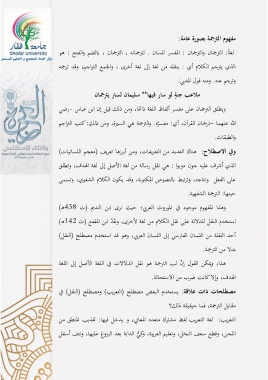 جامعة ظفار
Dhofar University
مفهوم الترجمة بصورة عامة:
لغةً: التَرجمان والتُرجمان: المفسر للسان. التُرجمانه، التَرجمان، بالضم والفتح: هو
الذي يترجم الكلام أي: ينقله من لغة إلى لغة أخرى، والجمع التراجم، وقد ترجمه
وترجم عنه. ومنه قول المتنبي:
ملاعب جنة لو سار فيها ** سليمان لسار بترجمان
ويطلق الترجمان على مفسر ألفاظ اللغة ذاتها، ومن ذلك قيل إن ابن عباس –رضي
الله عنهما– ترجمان القرآن، أي: مفسره. والترجمة هي السيرة، ومن ذلك: كتب التراجم
والطبقات.
وفي الاصطلاح: هناك العديد من التعريفات، ومن أبرزها تعريف (معجم اللسانيات)
الذي أشرف عليه جون دوبوا: هي نقل رسالة من لغة الأصل إلى لغة الهدف، وتطلق
على الفعل ونتاجه، وترتبط بالنصوص المكتوبة، وقد يكون الكلام الشفوي، وتسمى
حينها: الترجمة الشفهية.
وهذا المفهوم موجود في الموروث العربي؛ حيث نرى ابن النديم (ت 438ه)
استخدم النقل للدلالة على نقل الكلام من لغة لأخرى، وعدّ ابن المقفع (ت 142ه)
أحد النقلة من اللسان الفارسي إلى اللسان العربي، وهو قد استخدم مصطلح (النقل)
بدلا من الترجمة.
هذا، ويمكن القول إنّ لب الترجمة هو نقل الدلالات في اللغة الأصل إلى اللغة
الهدف، وإلا كانت ضرب من الاستحالة.
مصطلحات ذات علاقة: يستخدم البعض مصطلح (التعريب) ومصطلح (النقل) في
مقابل الترجمة، فما حقيقة ذلك؟
التعريب: لغة التعريب لفظ مشترك متعدد المعاني، و يدخل فيها: تهذيب المنطق من
اللحن، وقطع سعف النخل، وتعليم العربية، وكيّ الدابة بعد البزوغ عليها، ونتف أسفل